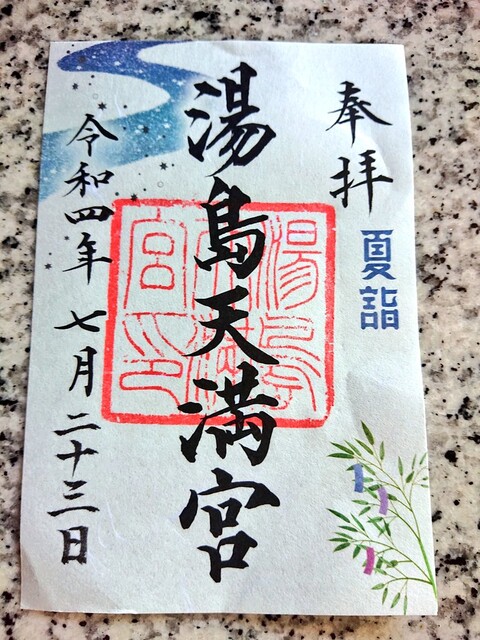 奉拝
夏詣
湯島天満宮
湯島天満宮印
令和四年 七月二十三日